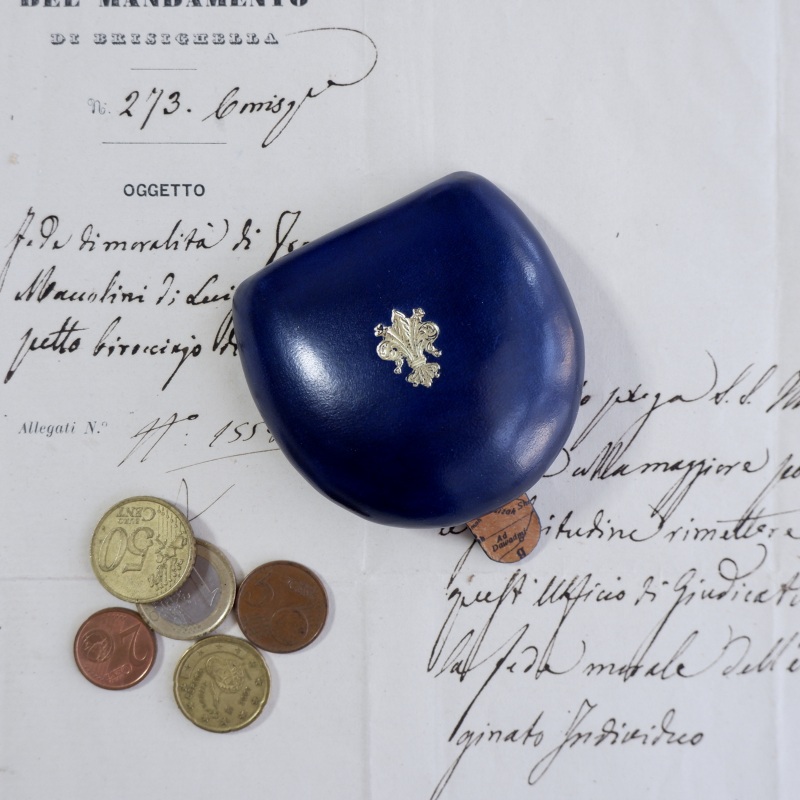 DEL MANDAMENTO
DI BRISIGHELLA
N. 273. Corrisp
OGGETTO
fede di moralità di
Maccolini di Lui
petto biroccinjo di
Allegati N.º
N.º 155
prega S. S.
alla maggiore
itudine rimettere
quest Uffizio di Giudicat
la fede morale dell'
ginato Individuo
Ad
Dawadimi
50
EURO
CENT
1
2